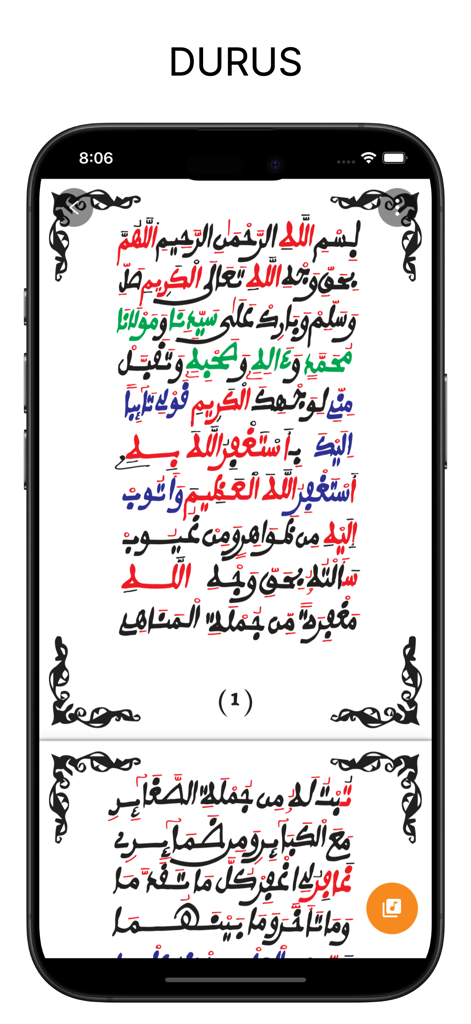 DURUS
8:06
بِسْمِ اللَّهِ الرَّحْمَٰنِ الرَّحِيمِ اللَّهُمَّ
بِحَقِّ وَجْهِ اللَّهِ تَعَالَى الْكَرِيمِ صَلِّ
وَسَلِّمْ وَبَارِكْ عَلَى سَيِّدِنَا وَمَوْلَانَا
مُحَمَّدٍ وَءَالِهِ وَصَحْبِهِ وَتَقَبَّلْ
مِنِّي لِوَجْهِكَ الْكَرِيمِ قَوْلِي تَائِبًا
إِلَيْكَ بِأَسْتَغْفِرُ اللَّهَ
أَسْتَغْفِرُ اللَّهَ الْعَظِيمَ وَأَتُوبُ
إِلَيْهِ مِن ظَوَاهِرٍ وَمِن غُيُوبْ
سَأَلْتُهُ بِحَقِّ وَجْهِ اللَّهِ
مَغْفِرَةً مِّن جُمْلَةِ الْمَنَاهِي
(1)
تُبْتُ لَهُ مِن جُمْلَةِ الصَّغَائِرِ
مَعَ الْكَبَائِرِ وَمِن ضَمَائِرِي
غَافِرُ لِي اغْفِرْ كُلَّ مَا تَقَدَّمَا
وَمَا تَأَخَّرَ وَمَا بَيْنَهُمَا